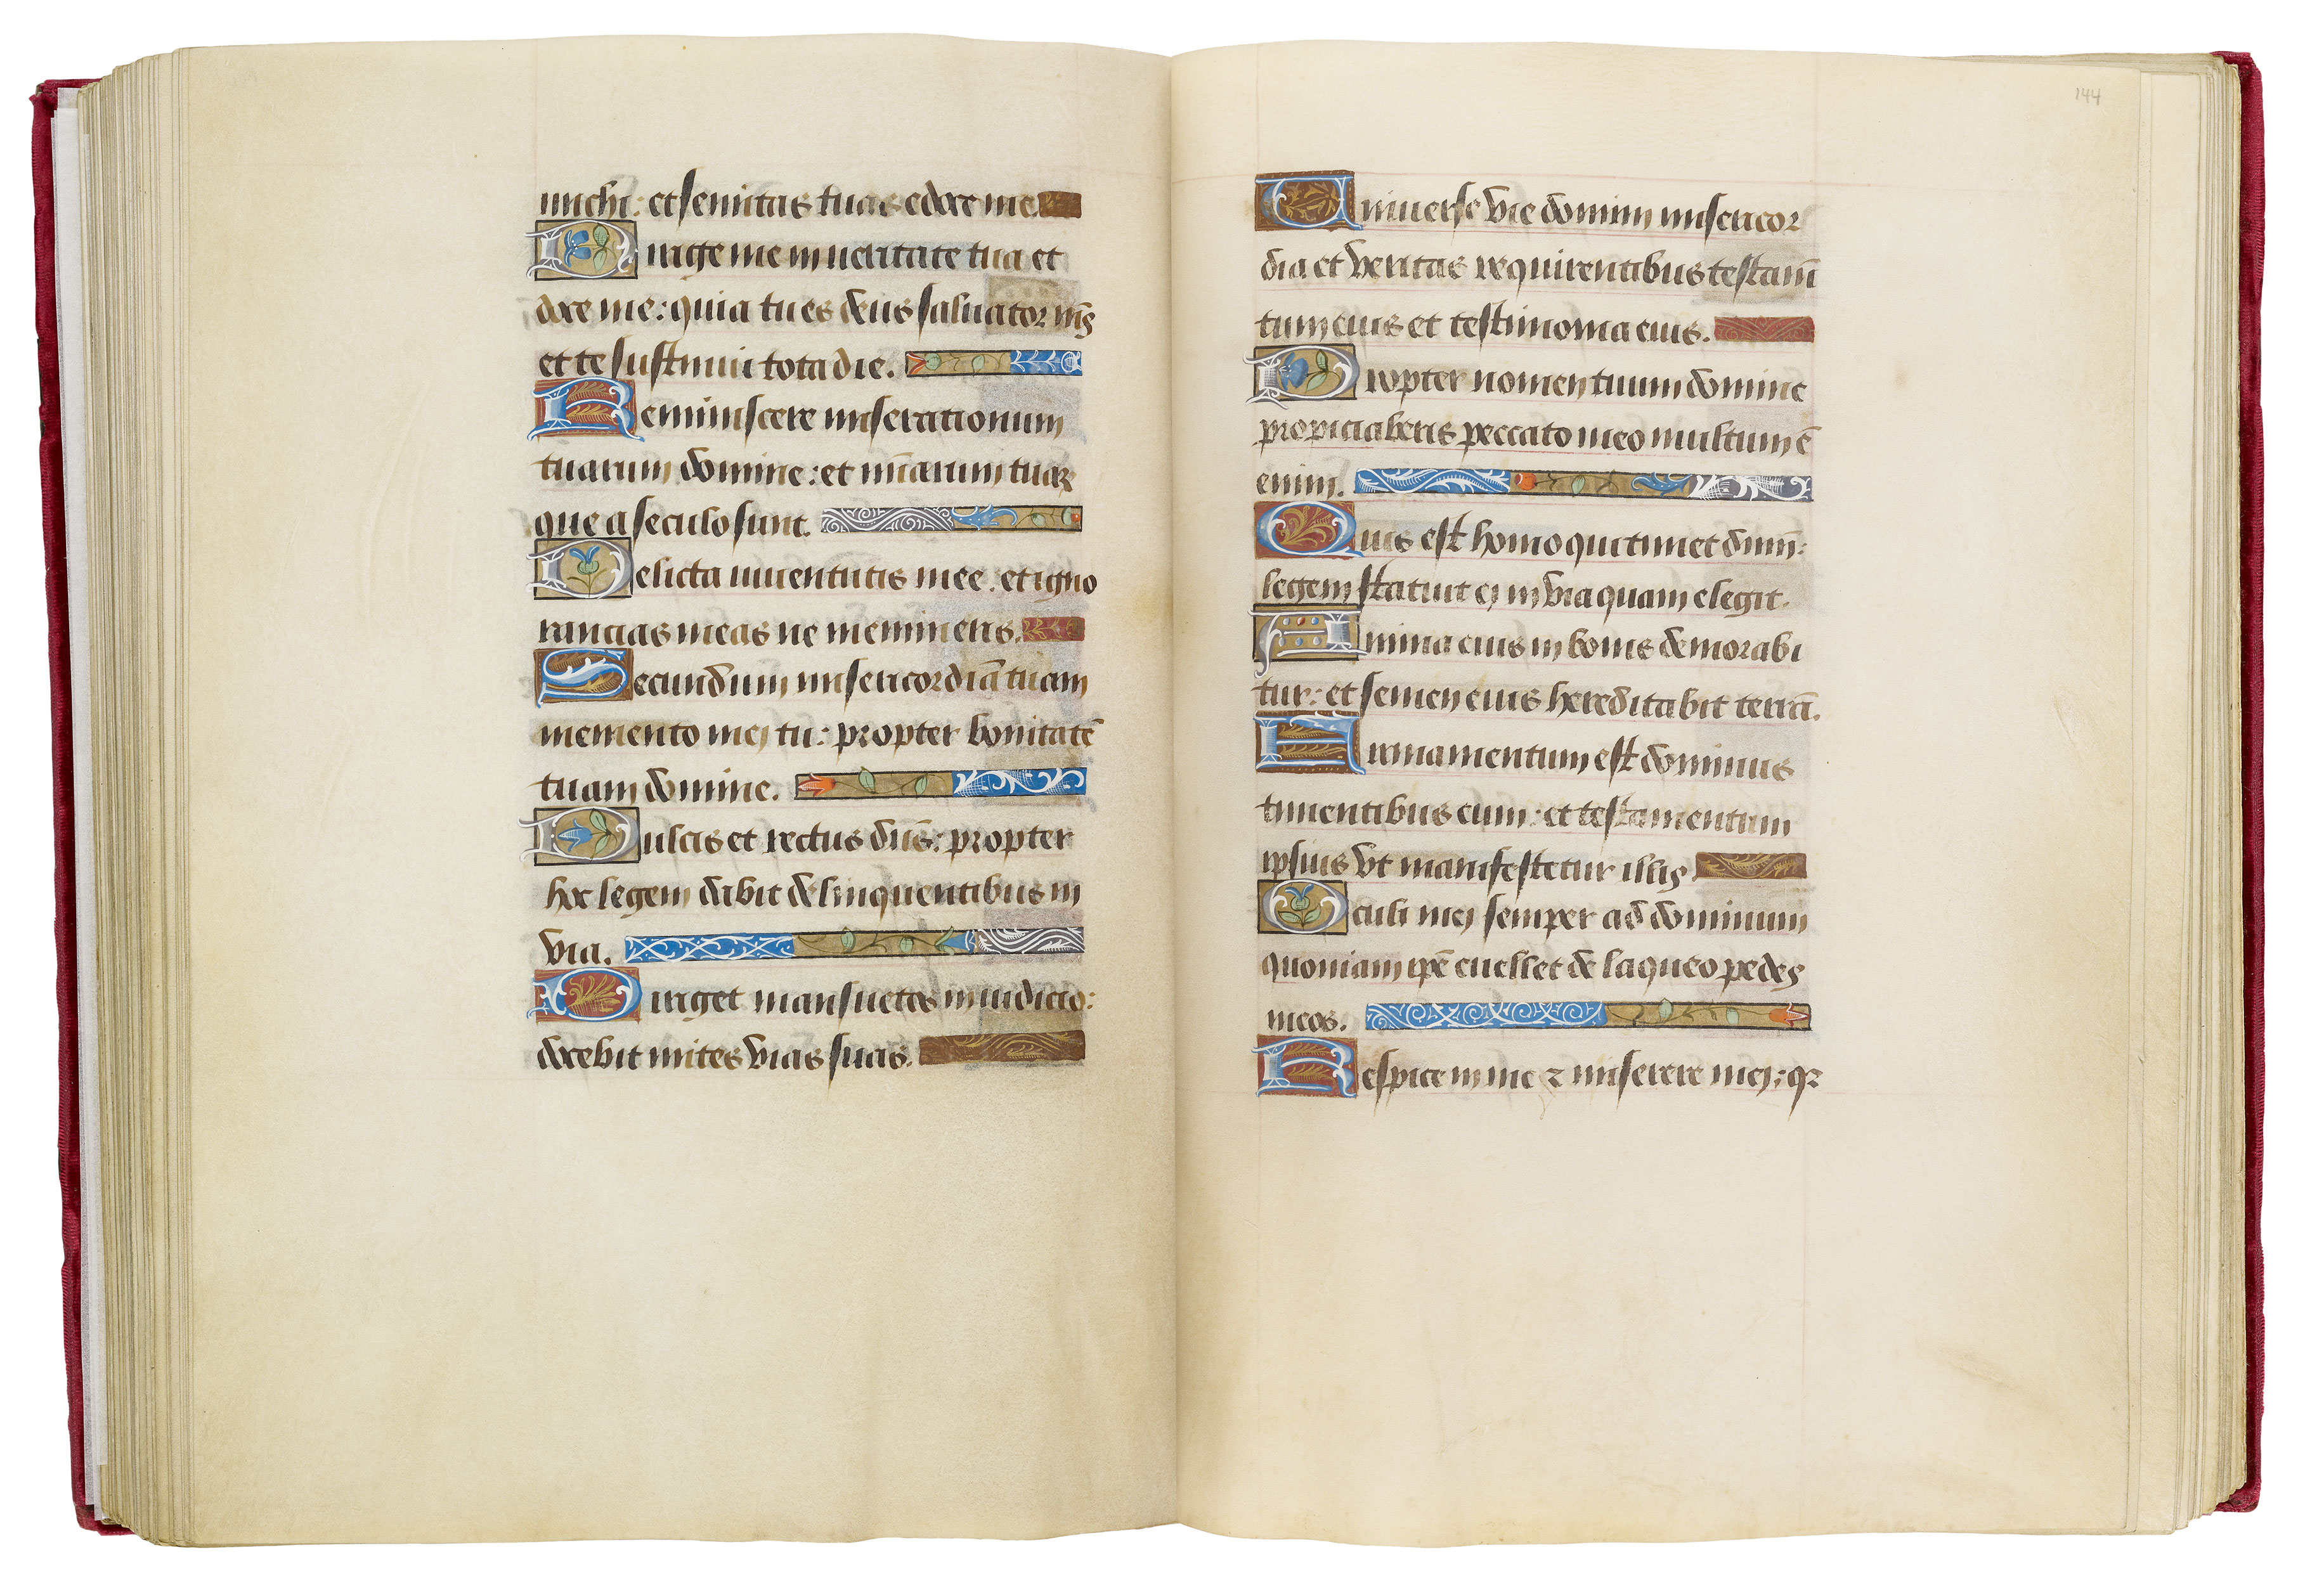 michi: et semitas tuas edoce me.
Dirige me in ueritate tua et
doce me: quia tu es deus saluator nr̄s
et te sustinui tota die.
Reminiscere miserationum
tuarum domine: et mīarum tuaꝝ
que a seculo sunt.
Delicta iuuentutis mee: et igno
rancias meas ne memineris.
Secundum misericordiā tuam
memento mei tu: propter bonitatē
tuam domine.
Dulcis et rectus dn̄s: propter
hoc legem dabit delinquentibus in
via.
Diriget mansuetos in iudicio:
docebit mites vias suas.
144
Uniuerse vie domini misericor
dia et veritas requirentibus testam̄
tum eius et testimonia eius.
Propter nomen tuum domine
propiciaberis peccato meo multum ē
enim.
Quis est homo qui timet dn̄m:
legem statuit ei in via quam elegit.
Anima eius in bonis demorabi
tur: et semen eius hereditabit terrā.
Firmamentum est dominus
timentibus eum: et testamentum
ipsius vt manifestetur illis.
Oculi mei semper ad dominum
quoniam ipē euellet de laqueo pedes
meos.
Respice in me ⁊ miserere mei: qꝛ